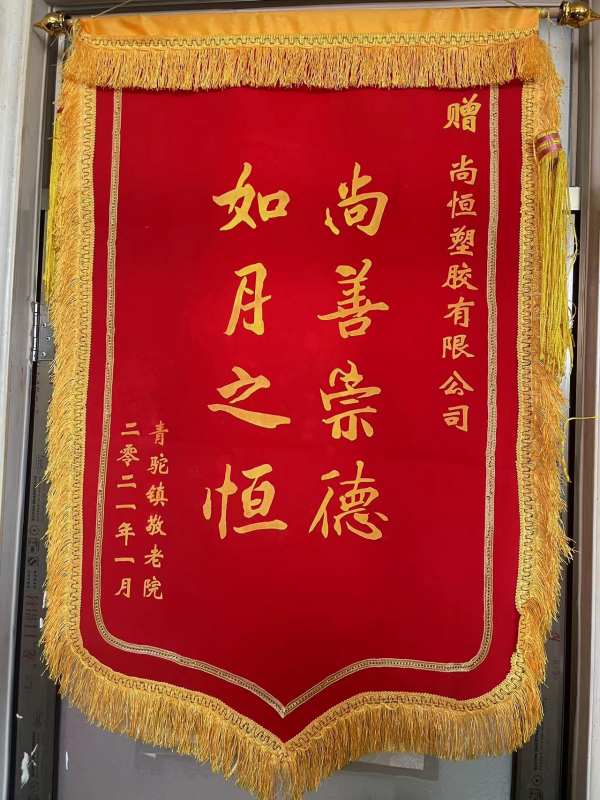 赠 尚恒塑胶有限公司
尚善崇德
如月之恒
青驼镇敬老院
二零二一年一月